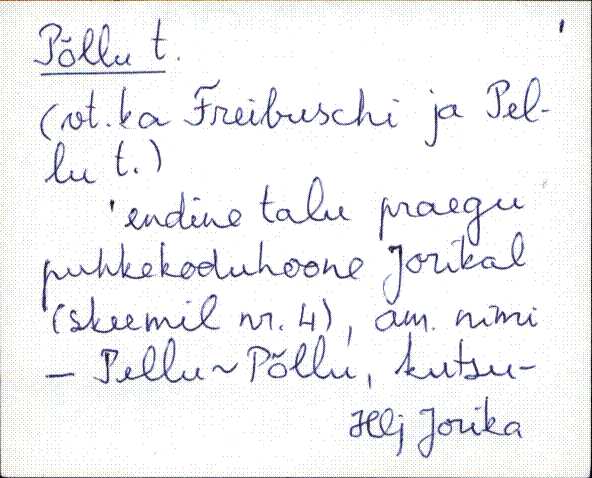 Põllu t.
(vt. ka Freibuschi ja Pel-
lu t.)
'endine talu praegu
puhkekoduhoone Jorikal
(skeemil nr. 4), am. nimi
– Pellu ~ Põllu, kutsu-
Hlj Jorika